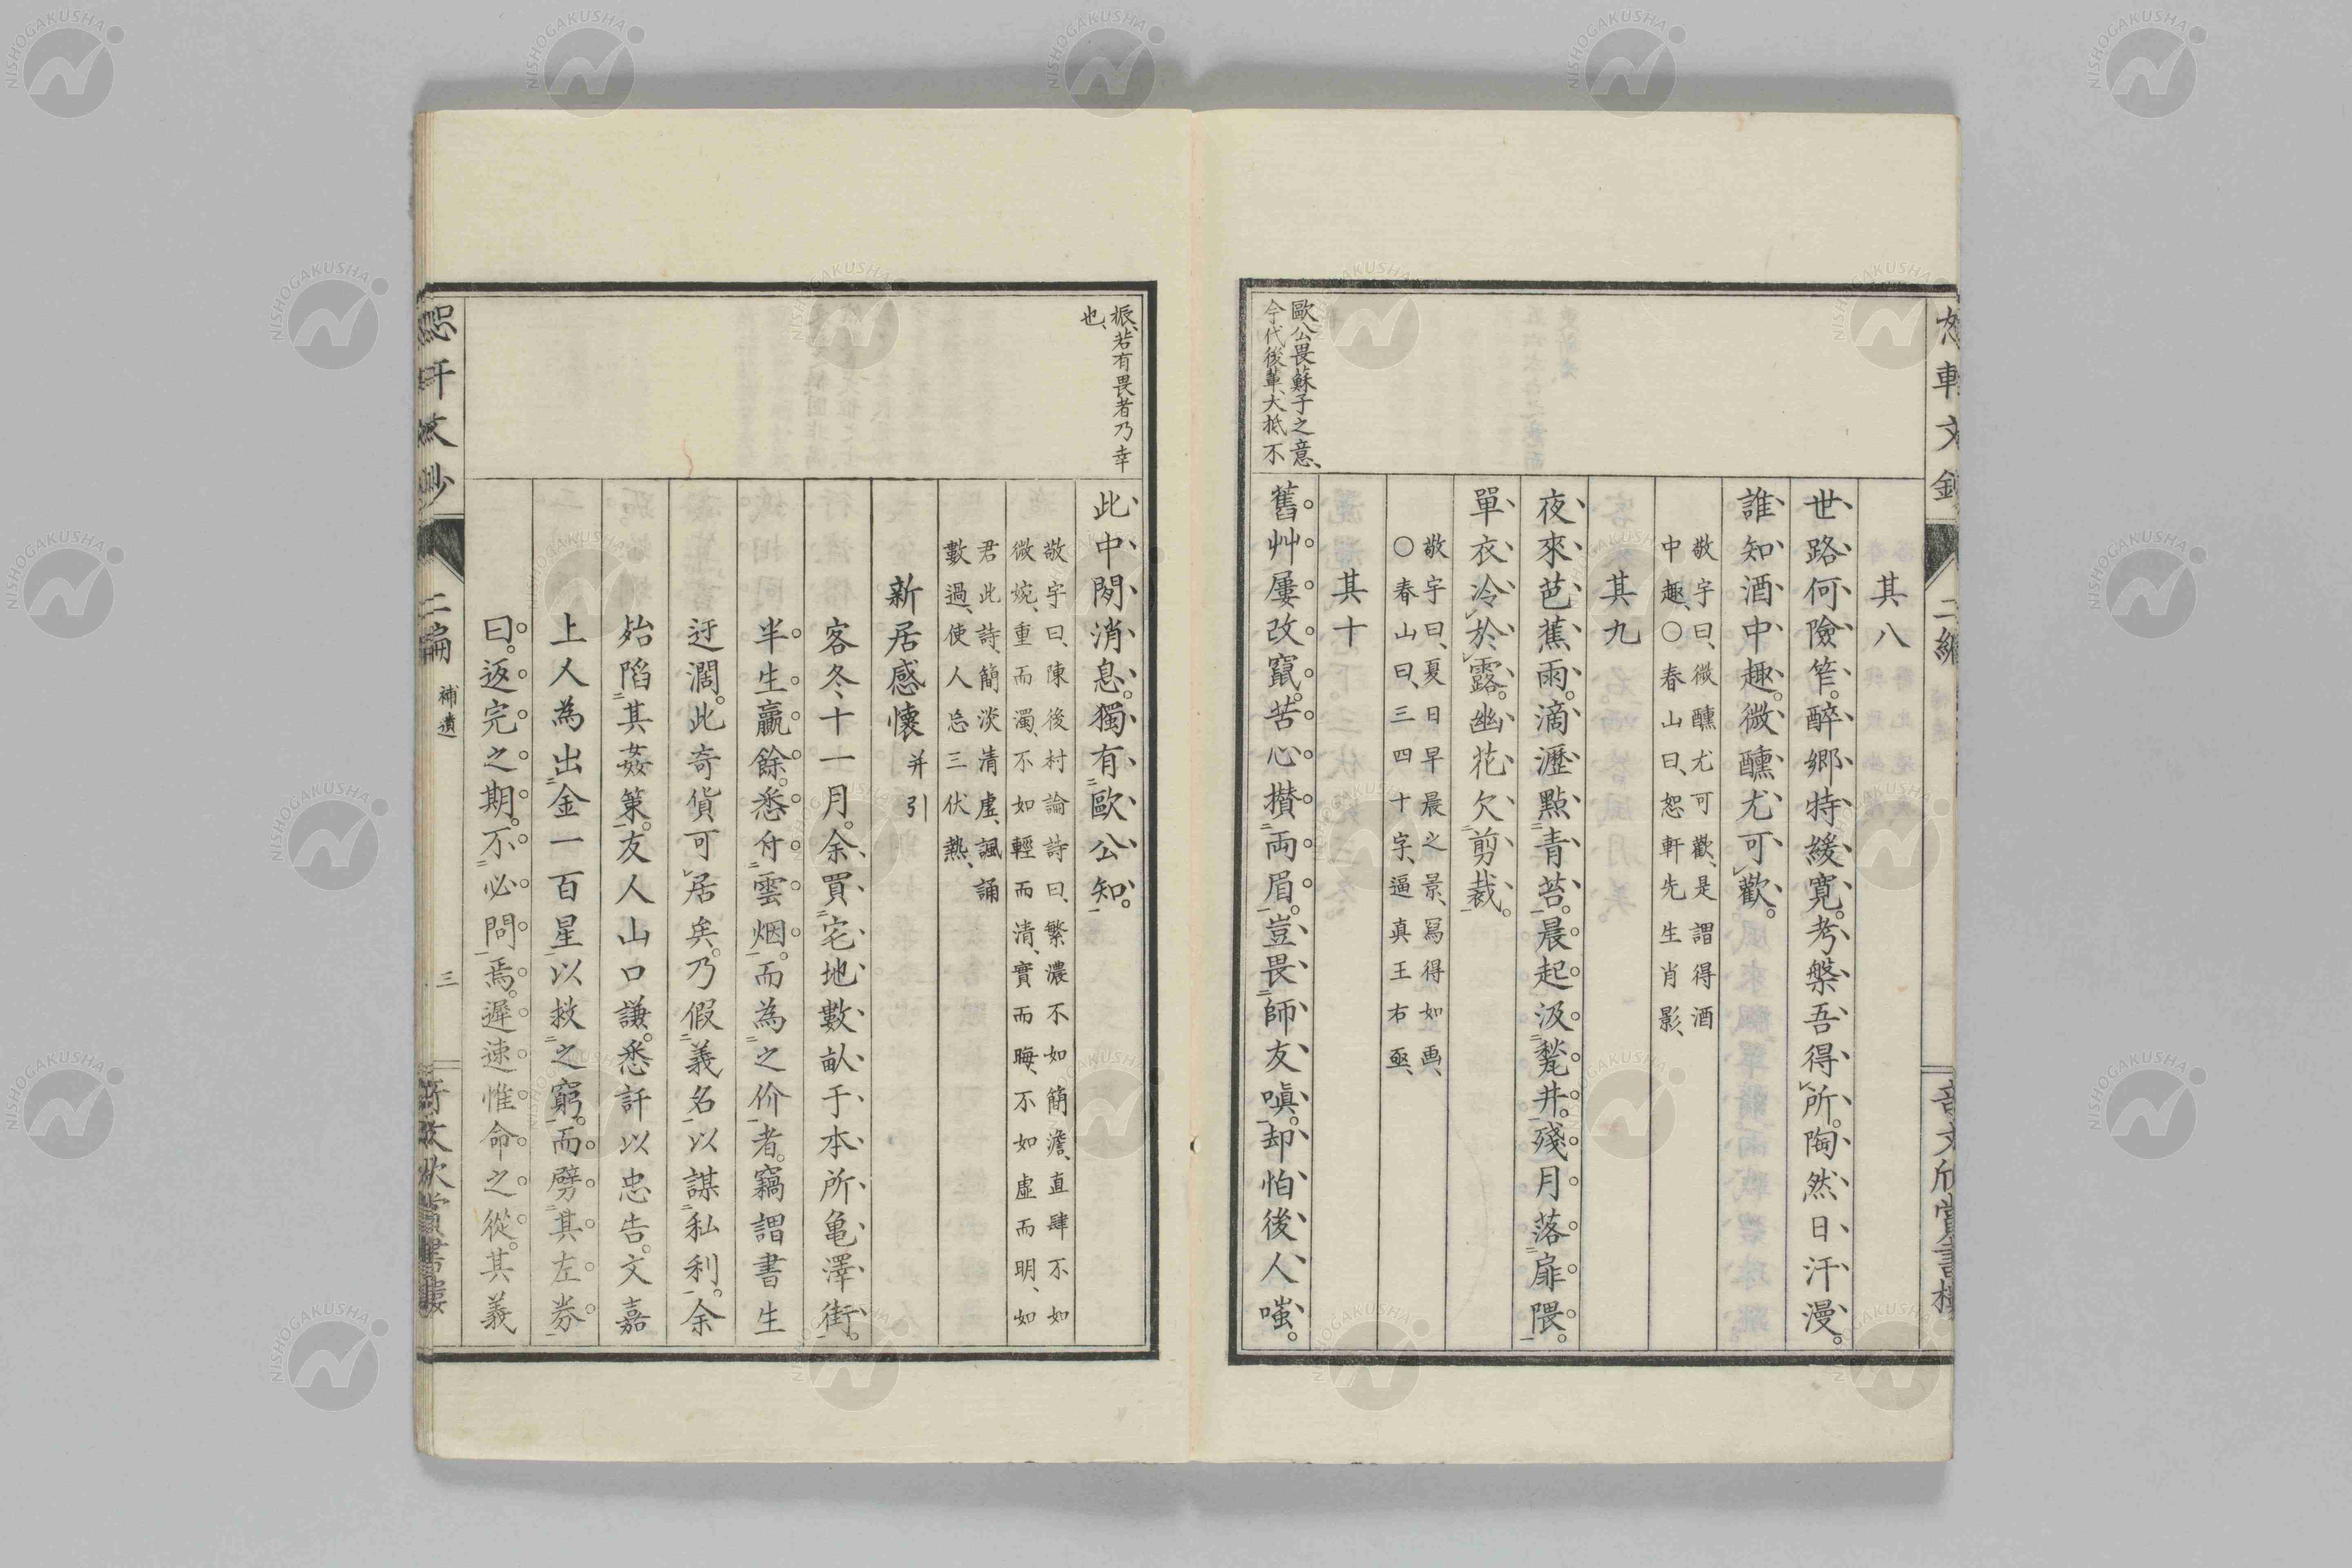 其八
世路何險窄。醉郷特緩寛。考槃吾得所。陶然日汗漫。
誰知酒中趣。微醺尤可歡。
敬宇曰、微醺尤可歡、是謂得酒
中趣、○春山曰、恕軒先生肖影、
其九
夜來芭蕉雨。滴瀝點青苔。晨起汲甃井。殘月落扉隈。
單衣冷於露。幽花欠剪裁。
敬宇曰、夏日早晨之景、冩得如画、
○春山曰、三四十字、逼真王右丞、
其十
歐公畏蘇子之意、
今代後輩、大抵不
舊艸屢改竄。苦心攢両眉。豈畏師友嗔。却怕後人嗤。
振、若有畏者乃幸
也、
此中閒消息。獨有歐公知。
敬宇曰、陳後村論詩曰、繁濃不如簡澹、直肆不如
微婉、重而濁、不如輕而清、實而晦、不如虚而明、如
君此詩、簡淡清虚、諷誦
數過、使人忘三伏熱、
新居感懷 并引
客冬、十一月。余買宅地數畝于本所亀澤街。
半生贏餘。悉付雲烟。而為之价者。竊謂書生
迂濶。此奇貨可居矣。乃假義名以謀私利。余
始陷其姦策。友人山口謙。悉訐以忠告。文嘉
上人為出金一百星以救之窮。而劈其左券
曰。返完之期。不必問焉。遲速惟命之從。其義
恕軒文鈔
二編
補遺
三
奇文欣賞書樓
NISHOGAKUSHA